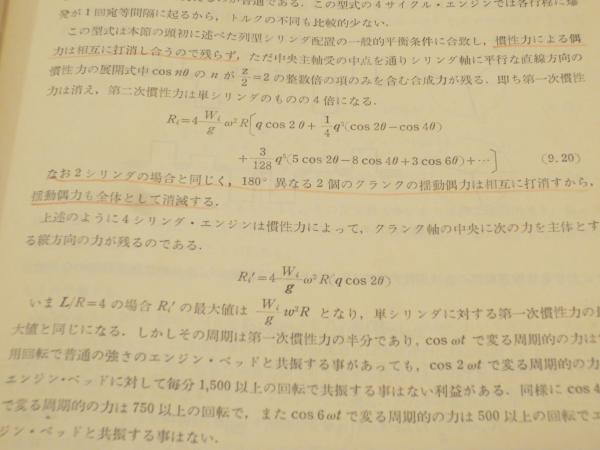 が普通である．この型式の4サイクル・エンジンでは各行程に爆
発が1回宛等間隔に起るから，トルクの不同も比較的少ない．
この型式は本節の頭初に述べた列型シリンダ配置の一般的平衡条件に合致し，慣性力による偶
力は相互に打消し合うので残らず，ただ中央主軸受の中点を通りシリンダ軸に平行な直線方向の
慣性力の展開式中 cos nθ の n が z/2=2 の整数倍の項のみを含む合成力が残る．即ち第一次慣性
力は消え，第二次慣性力は単シリンダのものの4倍になる．
Ri=4 Wi/g ω²R[q cos 2θ+ 1/4 q³(cos 2θ−cos 4θ)
+ 3/128 q⁵(5 cos 2θ−8 cos 4θ+3 cos 6θ)+…] (9.20)
なお2シリンダの場合と同じく，180° 異なる2個のクランクの揺動偶力は相互に打消すから，
揺動偶力も全体として消滅する．
上述のように4シリンダ・エンジンは慣性力によって，クランク軸の中央に次の力を主体とす
る縦方向の力が残るのである．
Ri′=4 Wi/g ω²R(q cos 2θ)
いま L/R=4 の場合 Ri′ の最大値は Wi/g w²R となり，単シリンダに対する第一次慣性力の
大値と同じになる．しかしその周期は第一次慣性力の半分であり，cos ωt で変る周期的の力は
用回転で普通の強さのエンジン・ベッドと共振する事があっても，cos 2ωt で変る周期的の力
エンジン・ベッドに対して毎分 1,500 以上の回転で共振する事はない利益がある．同様に cos 4
で変る周期的の力は 750 以上の回転で，また cos 6ωt で変る周期的の力は 500 以上の回転でエ
ジン・ベッドと共振する事はない．